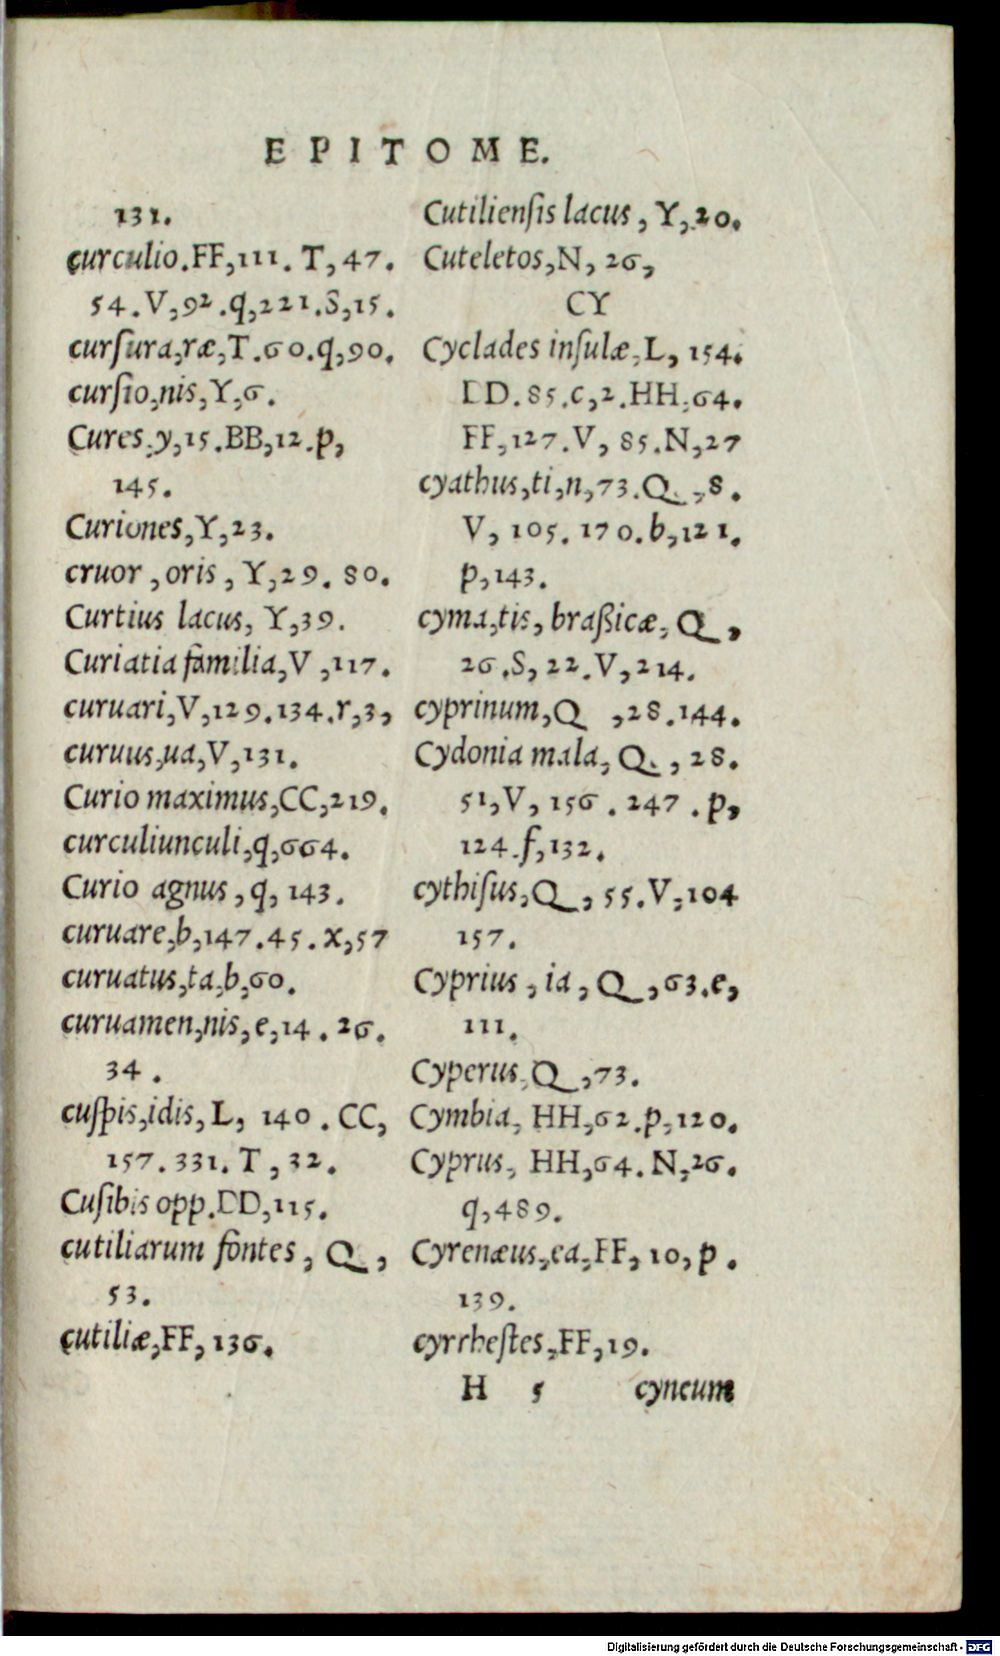 EPITOME.
131.
curculio.FF,111. T,47.
54.V,92.q,221.S,15.
curſura,ræ,T.60.q,90.
curſio,nis,Y,6.
Cures.y,15.BB,12.p,
145.
Curiones,Y,23.
cruor, oris, Y,29. 80.
Curtius lacus, Y,39.
Curiatia familia,V,117.
curuari,V,129.134.r,3,
curuus,ua,V,131.
Curio maximus,CC,219.
curculiunculi,q,664.
Curio agnus, q, 143.
curuare,b,147.45.x,57
curuatus,ta,b,60.
curuamen,nis,e,14.26.
34.
cuſpis,idis, L, 140. CC,
157.331. T, 32.
Cuſibis opp.DD,115.
cutiliarum fontes, Q,
53.
cutiliæ,FF, 136.
Cutilienſis lacus, Y,20.
Cuteletos,N, 26,
CY
Cyclades inſulæ, L, 154.
DD.85.c,2.HH.64.
FF,127.V, 85.N,27
cyathus,ti,n,73.Q.,8.
V, 105. 170.b,121.
p,143.
cyma,tis, braßicæ, Q,
26.S, 22.V,214.
cyprinum,Q ,28.144.
Cydonia mala, Q., 28.
51,V, 156. 247.p,
124.f,132.
cythiſus,Q, 55.V,104
157.
Cyprius, ia, Q, 63.e,
111.
Cyperus, Q,73.
Cymbia, HH,62.p,120.
Cyprus, HH,64. N,26.
q,489.
Cyrenæus,ea,FF, 10, p.
139.
cyrrheſtes,FF,19.
H 5 cyncum
Digitalisierung gefördert durch die Deutsche Forschungsgemeinschaft - DFG